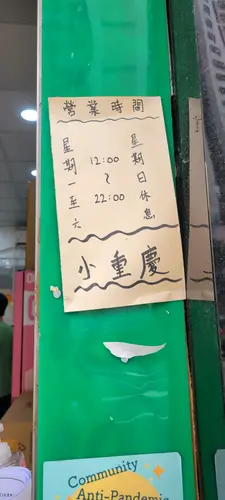 營業時間
星期一至六
12:00
~
22:00
星期日休息
小重慶
Community
Anti-Pandemic